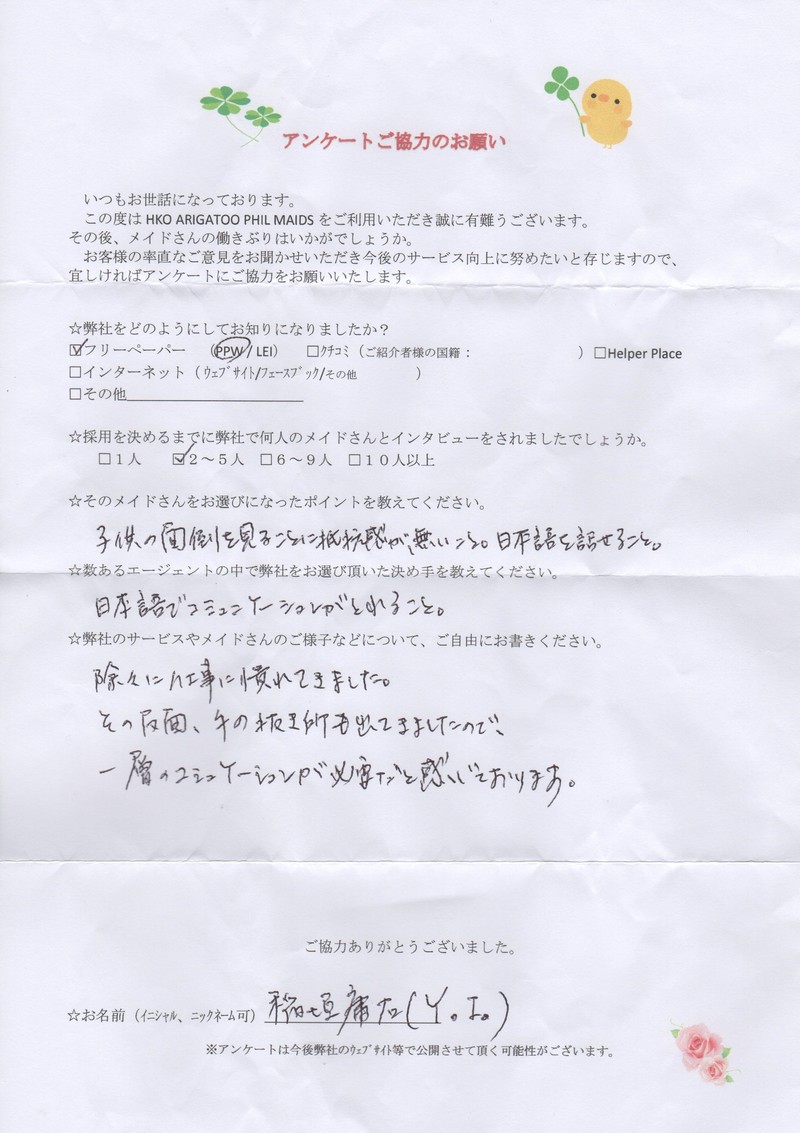 アンケートご協力のお願い
いつもお世話になっております。
この度は HKO ARIGATOO PHIL MAIDS をご利用いただき誠に有難うございます。
その後、メイドさんの働きぶりはいかがでしょうか。
お客様の率直なご意見をお聞かせいただき今後のサービス向上に努めたいと存じますので、
宜しければアンケートにご協力をお願いいたします。
☆弊社をどのようにしてお知りになりましたか？
☑フリーペーパー （PPW / LEI） □クチコミ（ご紹介者様の国籍： ）□Helper Place
□インターネット（ ウェブサイト/フェースブック/その他 ）
□その他
☆採用を決めるまでに弊社で何人のメイドさんとインタビューをされましたでしょうか。
□１人 ☑２～５人 □６～９人 □１０人以上
☆そのメイドさんをお選びになったポイントを教えてください。
子供の面倒を見ることに抵抗感が無いこと。日本語を話せること。
☆数あるエージェントの中で弊社をお選び頂いた決め手を教えてください。
日本語でコミュニケーションがとれること。
☆弊社のサービスやメイドさんのご様子などについて、ご自由にお書きください。
除々に仕事に慣れてきました。
その反面、手の抜き所も出てきましたので、
一層のコミュニケーションが必要だと感じております。
ご協力ありがとうございました。
☆お名前（イニシャル、ニックネーム可） 稲垣 (Y.I.)
※アンケートは今後弊社のウェブサイト等で公開させて頂く可能性がございます。